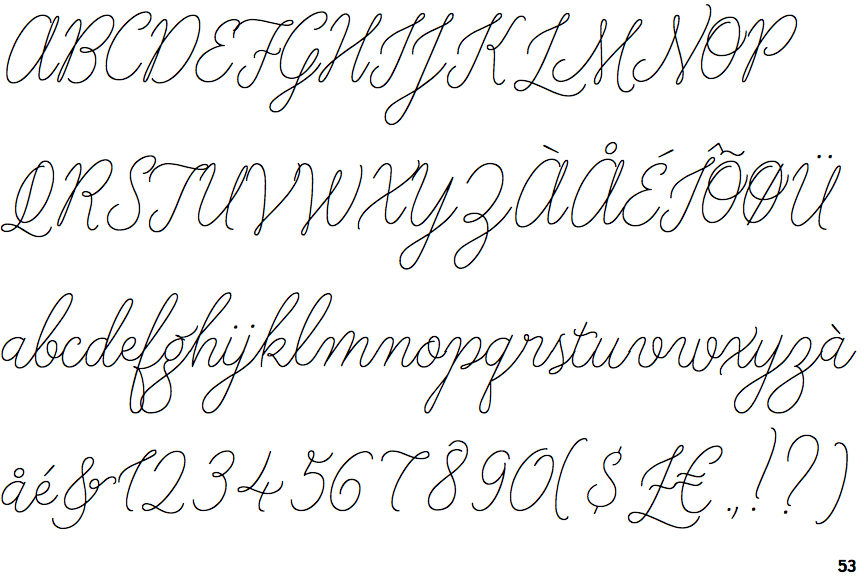 ABCDEFGHIJKLMNOP
QRSTUVWXYZÀÅÉÎÕØÜ
abcdefghijklmnopqrstuvwxyzà
åé&1234567890($£€.,!?)
53